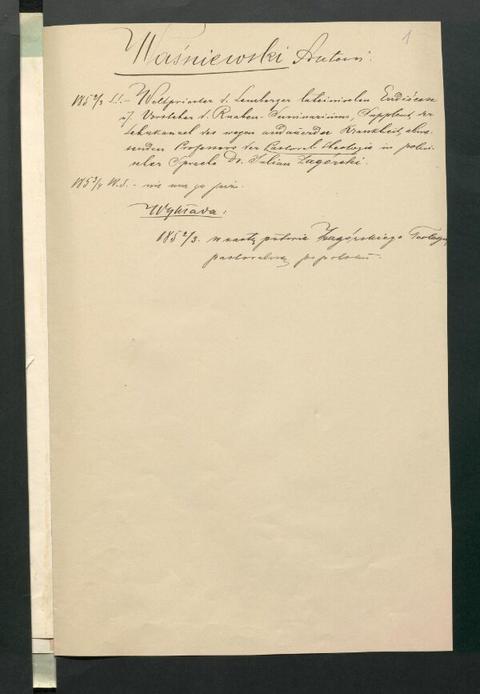 1
Waśniewski Antoni.
185 2/3 S.S. - Weltpriester d. Lemberger lateinischen Erdiöcese
u/ Vorsteher d. Knaben-Seminariums, Supplent der
Lehrkanzel des wegen andauernder Krankheit abwe-
senden Professors der Pastoral-theologie in polni-
scher Sprache Dr. Julian Zagórski.
185 3/4 W.S. - nie ma go już.
Wykłada:
185 2/3. w zastępstwie Zagórskiego Teologię
pastoralną po polsku.